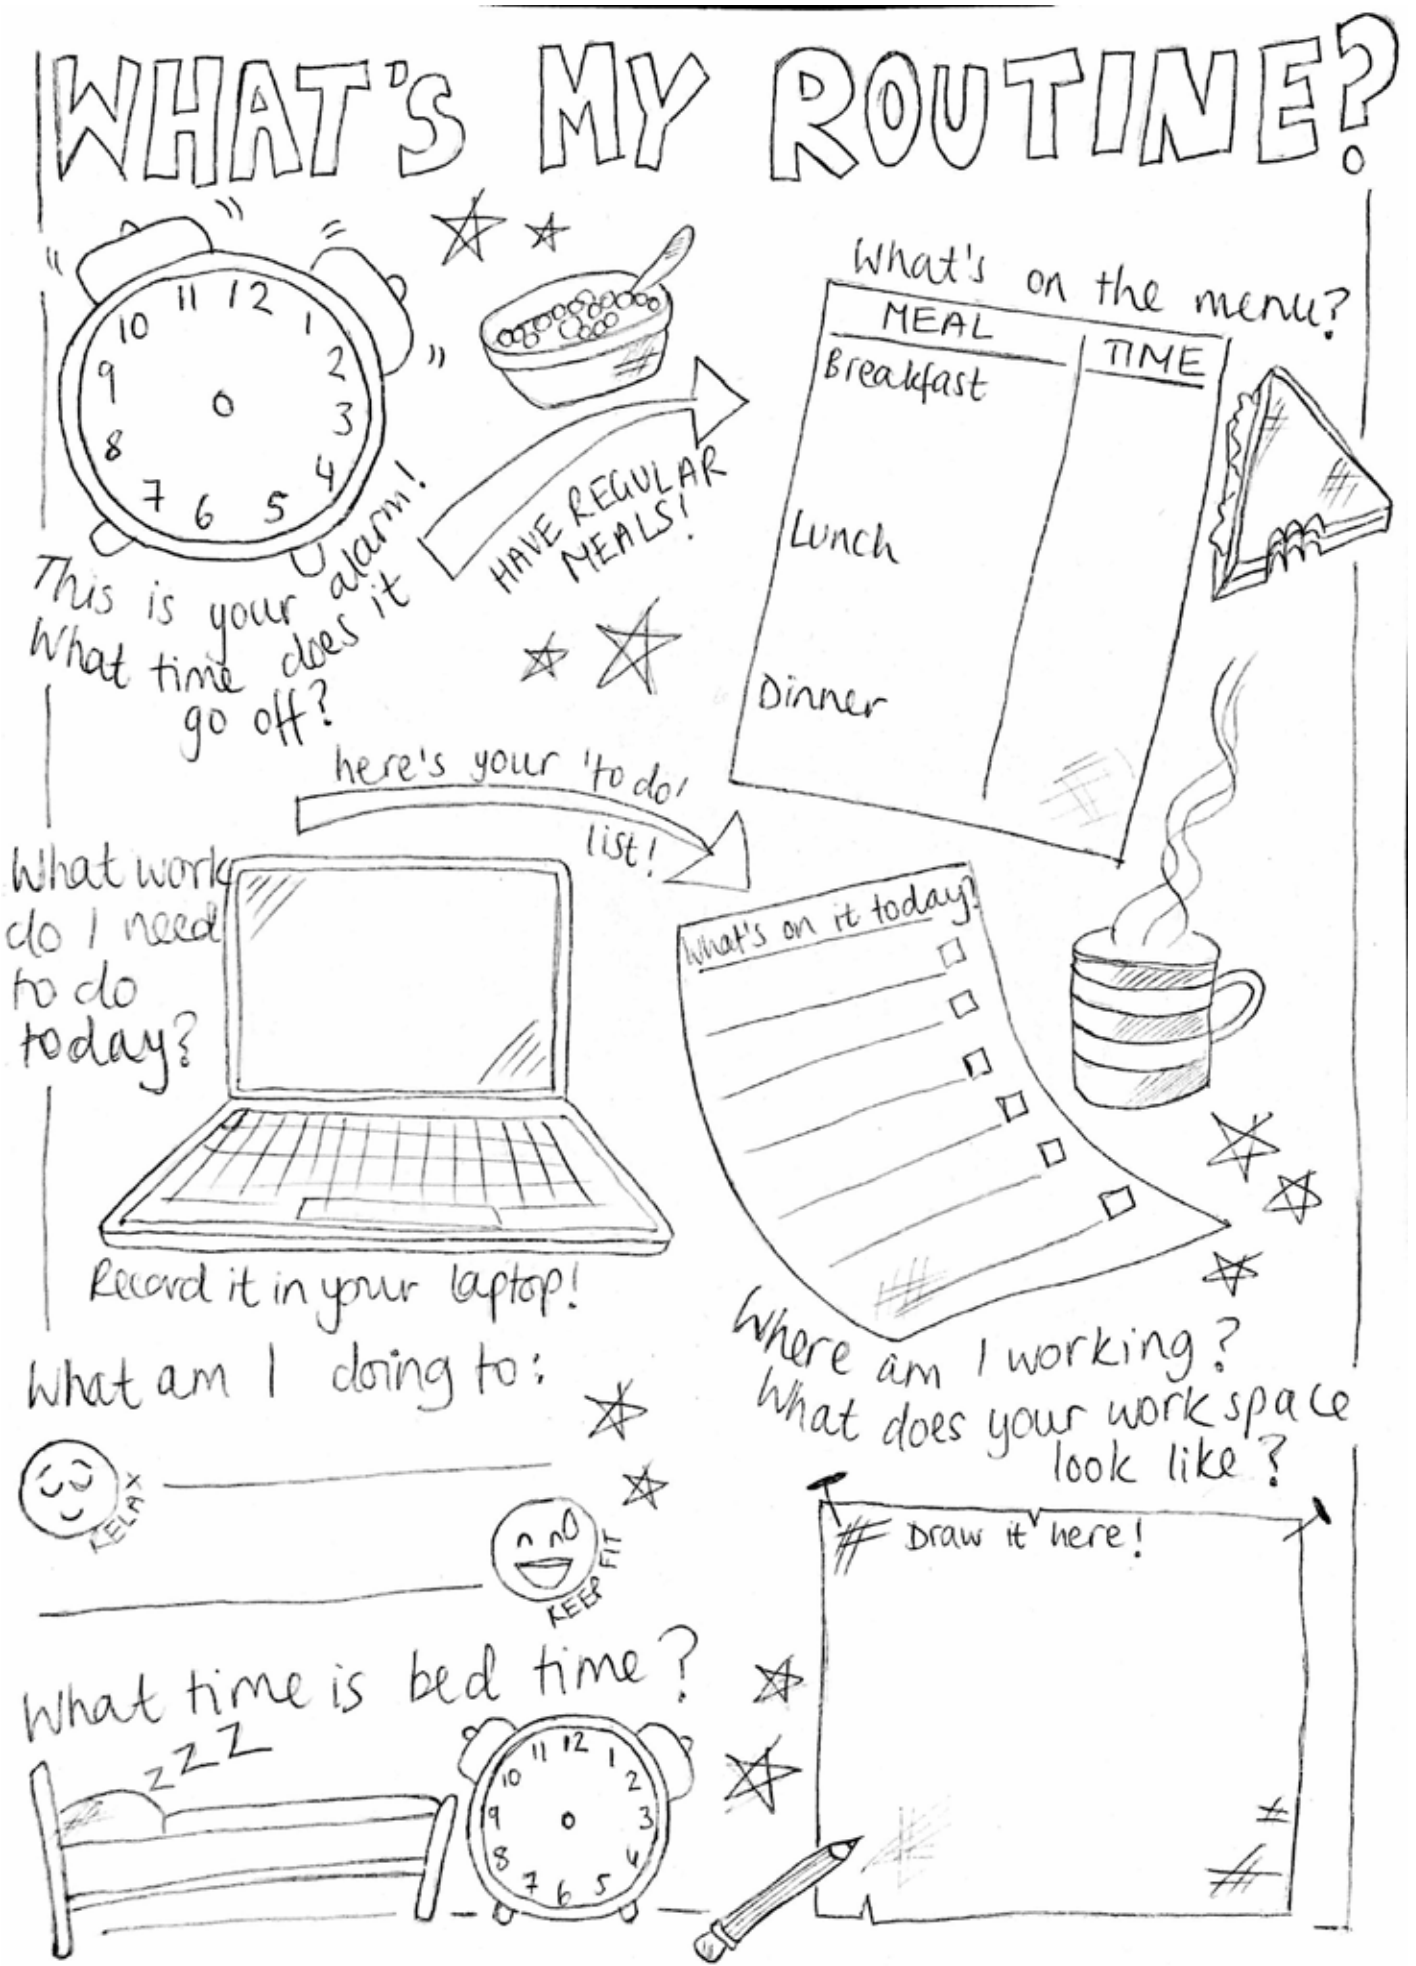 WHAT'S MY ROUTINE?
11 12 1
10 2
9 3
8 4
7 6 5
This is your alarm!
What time does it
go off?
HAVE REGULAR
MEALS!
What's on the menu?
MEAL TIME
Breakfast
Lunch
Dinner
here's your 'to do'
list!
What work
do I need
to do
today?
Record it in your laptop!
What's on it today?
What am I doing to:
RELAX
KEEP FIT
Where am I working?
What does your work space
look like?
Draw it here!
What time is bed time?
zzz
11 12 1
10 2
9 3
8 4
7 6 5